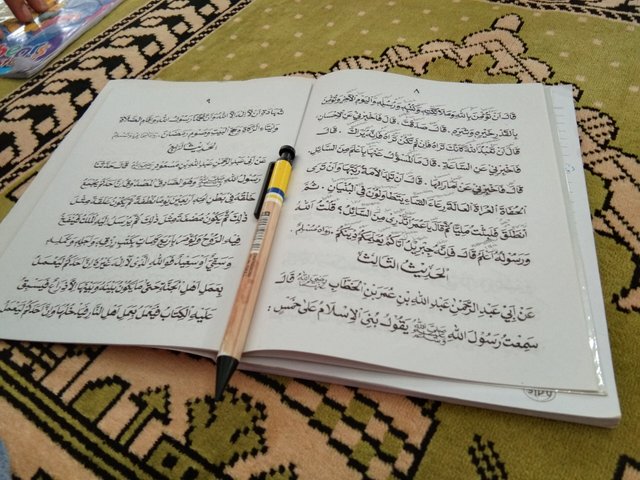 ٨
قَالَ أَنْ تُؤْمِنَ بِاللهِ وَمَلَائِكَتِهِ وَكُتُبِهِ وَرُسُلِهِ وَالْيَوْمِ الْآخِرِ وَتُؤْمِنَ
بِالْقَدَرِ خَيْرِهِ وَشَرِّهِ . قَالَ صَدَقْتَ . قَالَ فَأَخْبِرْنِي عَنِ الْإِحْسَانِ .
قَالَ أَنْ تَعْبُدَ اللهَ كَأَنَّكَ تَرَاهُ فَإِنْ لَمْ تَكُنْ تَرَاهُ فَإِنَّهُ يَرَاكَ . قَالَ
فَأَخْبِرْنِي عَنِ السَّاعَةِ . قَالَ مَا الْمَسْؤُولُ عَنْهَا بِأَعْلَمَ مِنَ السَّائِلِ .
قَالَ فَأَخْبِرْنِي عَنْ أَمَارَاتِهَا . قَالَ أَنْ تَلِدَ الْأَمَةُ رَبَّتَهَا وَأَنْ تَرَى
الْحُفَاةَ الْعُرَاةَ الْعَالَةَ رِعَاءَ الشَّاءِ يَتَطَاوَلُونَ فِي الْبُنْيَانِ . ثُمَّ
انْطَلَقَ فَلَبِثْتُ مَلِيًّا ثُمَّ قَالَ يَا عُمَرُ أَتَدْرِي مَنِ السَّائِلُ؟ قُلْتُ اللهُ
وَرَسُولُهُ أَعْلَمُ قَالَ فَإِنَّهُ جِبْرِيلُ أَتَاكُمْ يُعَلِّمُكُمْ دِينَكُمْ . رَوَاهُ مُسْلِمٌ .
الْحَدِيثُ الثَّالِثُ
عَنْ أَبِي عَبْدِ الرَّحْمٰنِ عَبْدِ اللهِ بْنِ عُمَرَ بْنِ الْخَطَّابِ قَالَ
سَمِعْتُ رَسُولَ اللهِ ﷺ يَقُولُ بُنِيَ الْإِسْلَامُ عَلَى خَمْسٍ :
٩
شَهَادَةِ أَنْ لَا إِلٰهَ إِلَّا اللهُ وَأَنَّ مُحَمَّدًا رَسُولُ اللهِ وَإِقَامِ الصَّلَاةِ
وَإِيتَاءِ الزَّكَاةِ وَحَجِّ الْبَيْتِ وَصَوْمِ رَمَضَانَ .
الْحَدِيثُ الرَّابِعُ
عَنْ أَبِي عَبْدِ الرَّحْمٰنِ عَبْدِ اللهِ بْنِ مَسْعُودٍ
رَسُولُ اللهِ ﷺ وَهُوَ الصَّادِقُ الْمَصْدُوقُ إِنَّ أَحَدَكُمْ يُجْمَعُ
خَلْقُهُ فِي بَطْنِ أُمِّهِ أَرْبَعِينَ يَوْمًا نُطْفَةً ثُمَّ يَكُونُ عَلَقَةً مِثْلَ
ذٰلِكَ ثُمَّ يَكُونُ مُضْغَةً مِثْلَ ذٰلِكَ ثُمَّ يُرْسَلُ إِلَيْهِ الْمَلَكُ فَيَنْفُخُ
فِيهِ الرُّوحَ وَيُؤْمَرُ بِأَرْبَعِ كَلِمَاتٍ بِكَتْبِ رِزْقِهِ وَأَجَلِهِ وَعَمَلِهِ
وَشَقِيٌّ أَوْ سَعِيدٌ فَوَاللهِ الَّذِي لَا إِلٰهَ غَيْرُهُ إِنَّ أَحَدَكُمْ لَيَعْمَلُ
بِعَمَلِ أَهْلِ الْجَنَّةِ حَتَّى مَا يَكُونُ بَيْنَهُ وَبَيْنَهَا إِلَّا ذِرَاعٌ فَيَسْبِقُ
عَلَيْهِ الْكِتَابُ فَيَعْمَلُ بِعَمَلِ أَهْلِ النَّارِ فَيَدْخُلُهَا وَإِنَّ أَحَدَكُمْ لَيَعْمَلُ